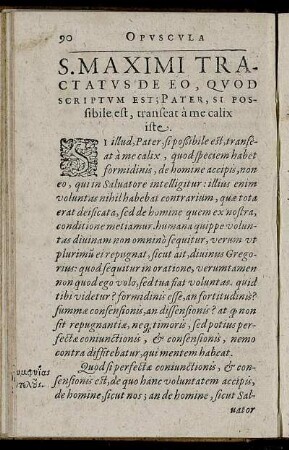 90 OPVSCVLA
S. MAXIMI TRA-
CTATVS DE EO, QVOD
SCRIPTVM EST; PATER, SI POS-
sibile est, transeat à me calix
iste.
SI illud; Pater, si poßibile est, transe-
at à me calix, quod speciem habet
formidinis, de homine accipis, non
eo, qui in Saluatore intelligitur: illius enim
voluntas nihil habebat contrarium, quæ tota
erat deificata, sed de homine quem ex nostra,
conditione metiamur. humana quippe volun-
tas diuinam non omninò sequitur, verum vt
plurimũ ei repugnat, sicut ait, diuinus Grego-
rius: quod sequitur in oratione, verumtamen
non quod ego volo, sed tua fiat voluntas. quid
tibi videtur? formidinis esse, an fortitudinis?
summæ consensionis, an dissensionis? at ꝙ non
sit repugnantiæ, neq; timoris, sed potius per-
fectæ coniunctionis, & consensionis, nemo
contra diffitebatur, qui mentem habeat.
Quod si perfectæ coniunctionis, & con-
sensionis est, de quo hanc voluntatem accipis,
de homine, sicut nos; an de homine, sicut Sal-
uator